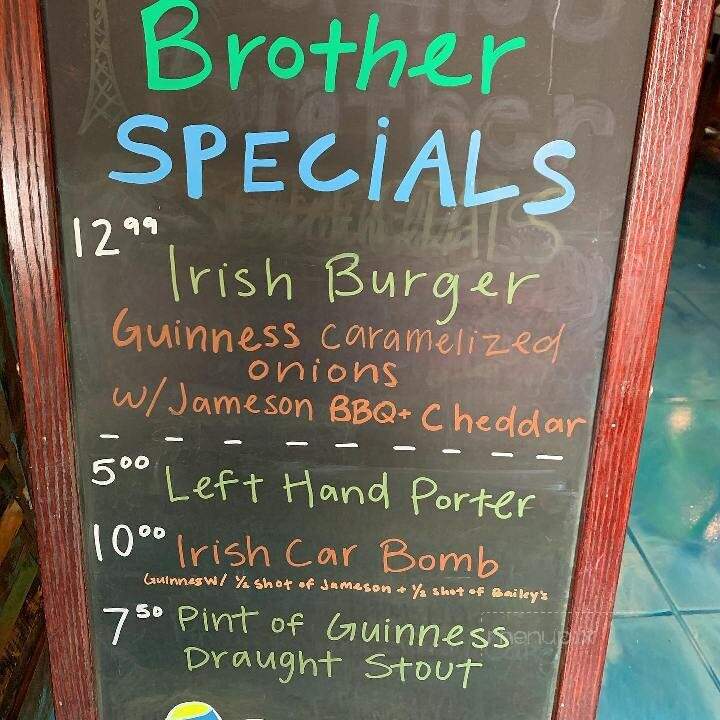 Brother
SPECiALS
12⁹⁹
Irish Burger
Guinness caramelized
onions
w/Jameson BBQ+ Cheddar
5⁰⁰ Left Hand Porter
10⁰⁰ Irish Car Bomb
Guinnes w/ ½ shot of Jameson + ½ shot of Bailey's
7⁵⁰ Pint of Guinness
Draught Stout